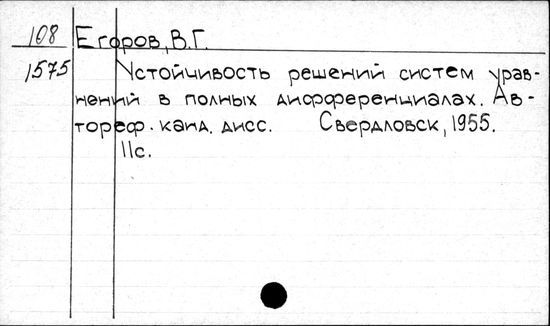 108 Егоров, В.Г.
1575 Устойчивость решений систем урав-
нений в полных дифференциалах. Ав-
тореф. канд. дисс. Свердловск, 1955.
11с.